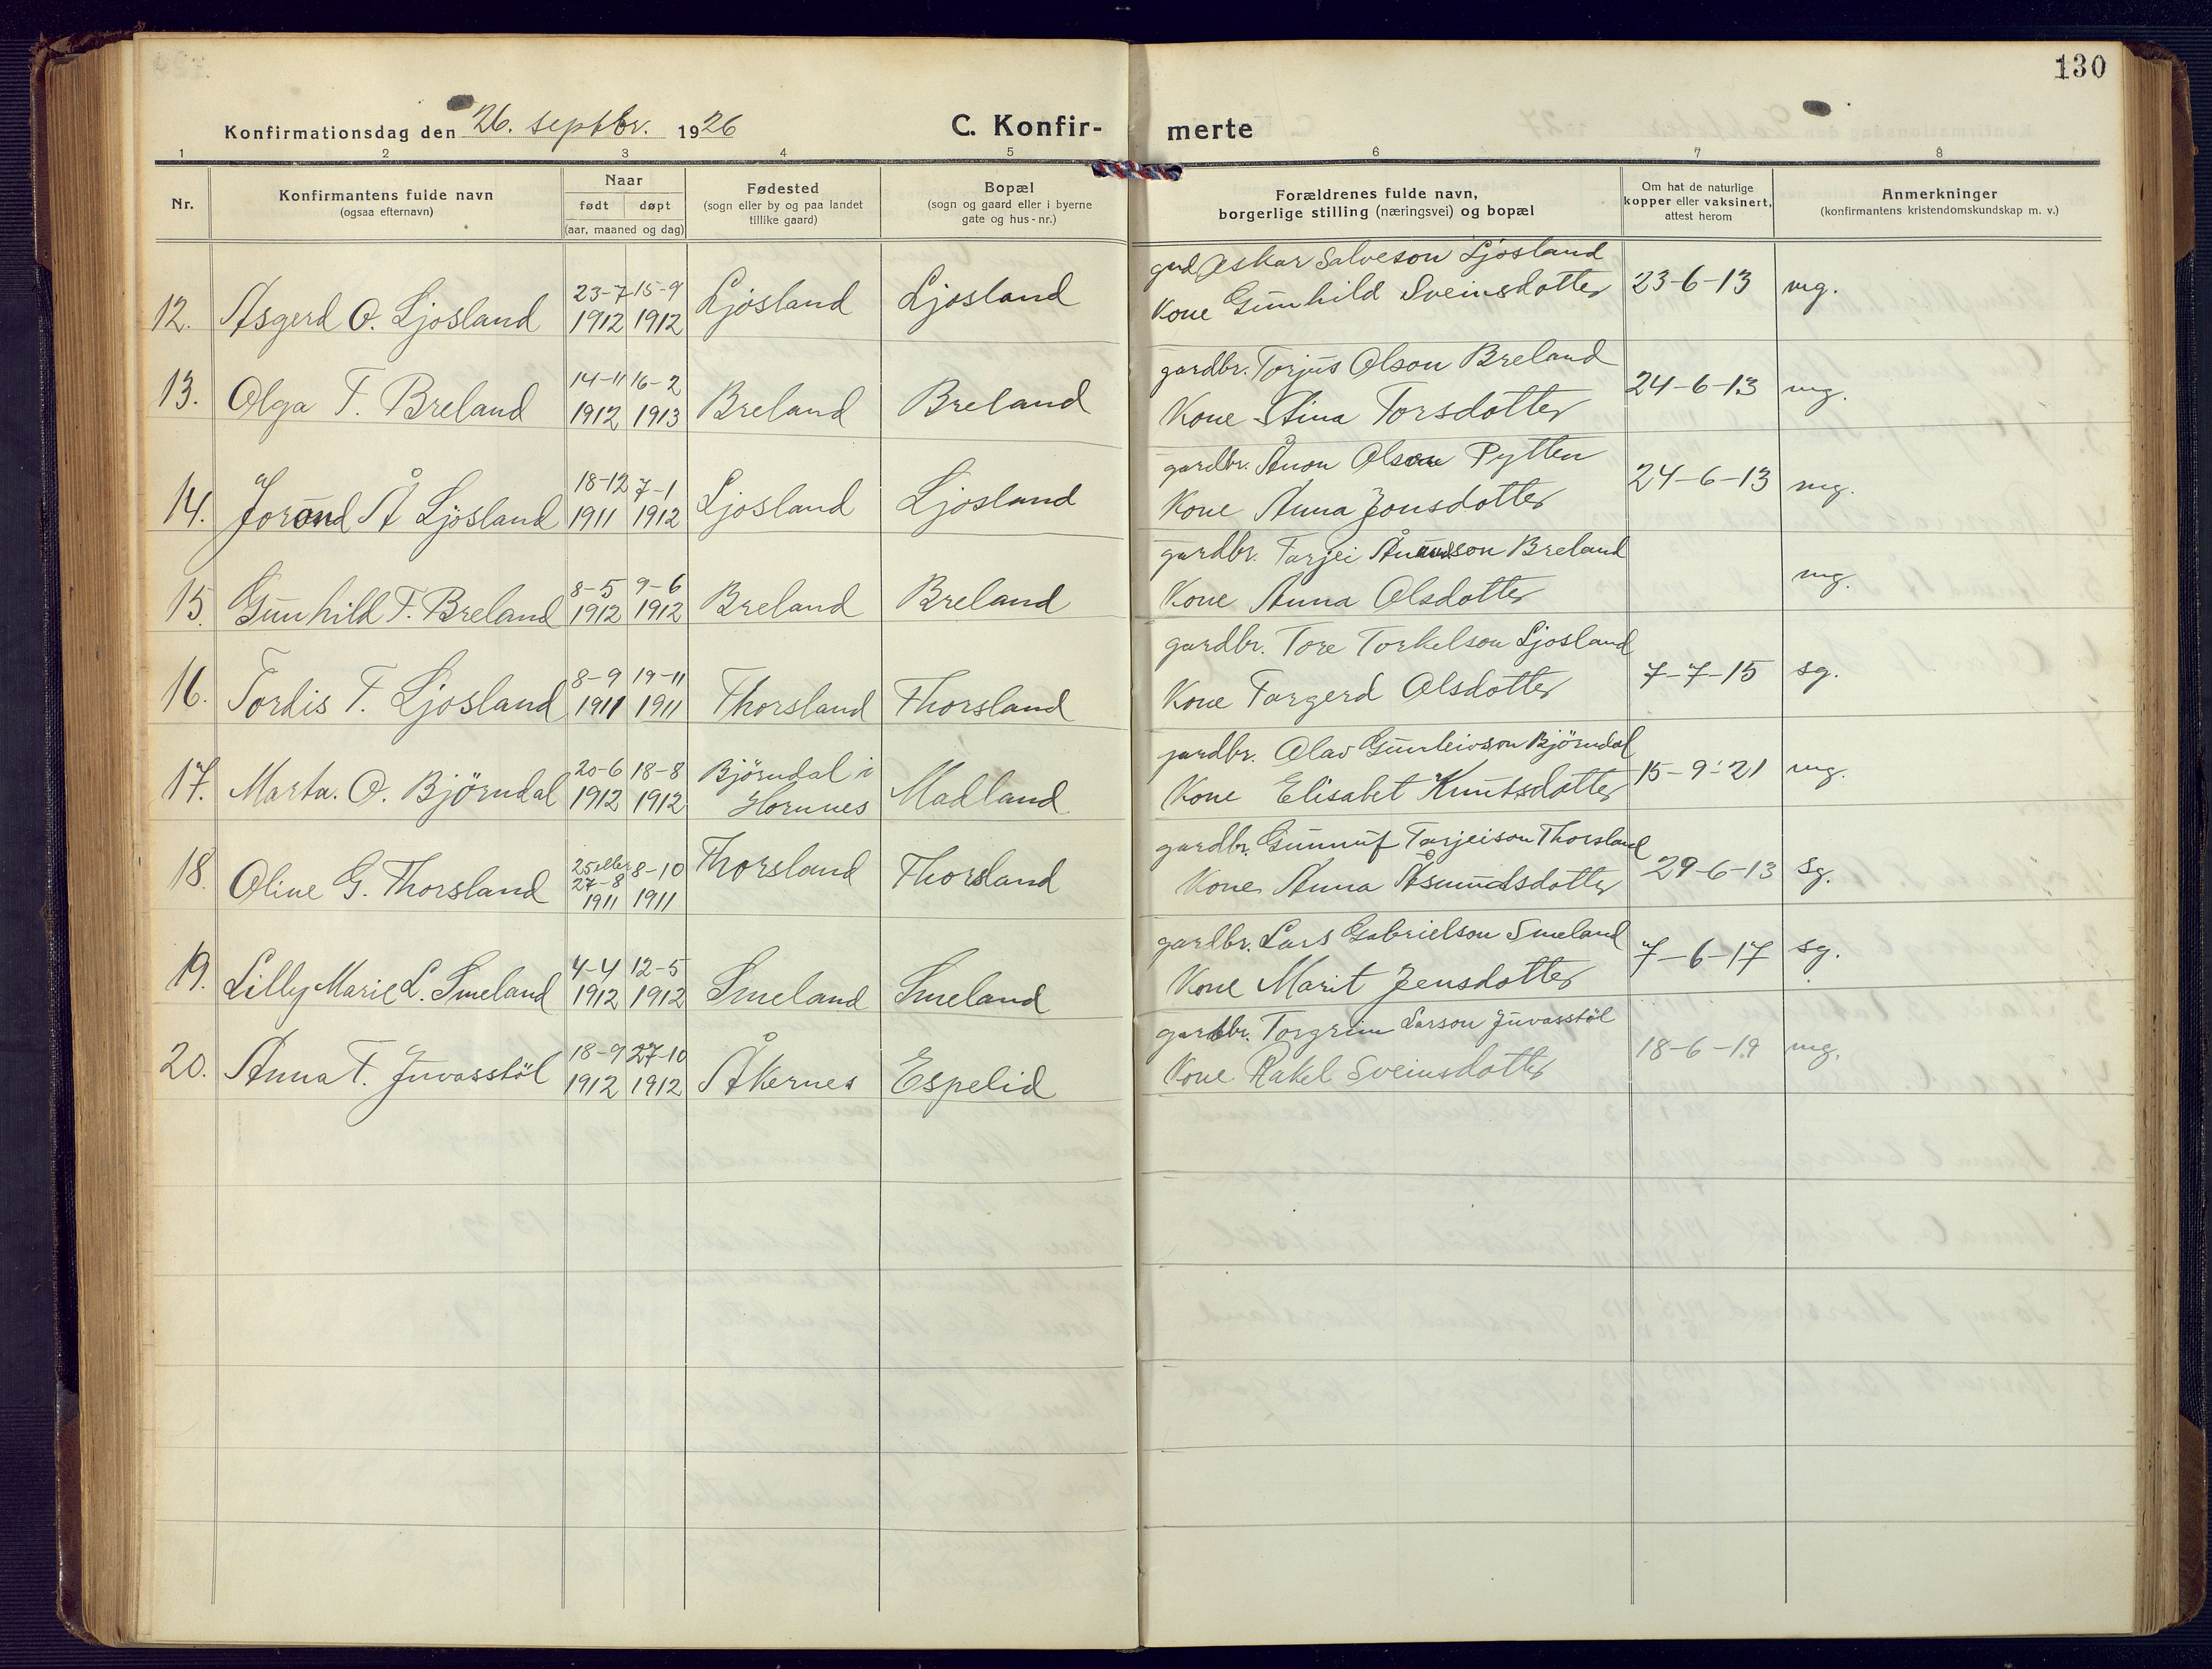 130
Konfirmationsdag den 26. septbr. 1926
C. Konfir-
merte
1 2 3 4 5 6 7 8
Nr.
Konfirmantens fulde navn
(ogsaa efternavn)
Naar
født døpt
(aar, maaned og dag)
Fødested
(sogn eller by og paa landet
tillike gaard)
Bopæl
(sogn og gaard eller i byerne
gate og hus-nr.)
Forældrenes fulde navn,
borgerlige stilling (næringsvei) og bopæl
Om hat de naturlige
kopper eller vaksinert,
attest herom
Anmerkninger
(konfirmantens kristendomskundskap m. v.)
23-7 15-9 grd Oskar Salveson Ljosland
12. Åsgerd O. Ljosland 1912 1912 Ljosland Ljosland Kone Gunhild Sveinsdotter 23-6-13 mg.
14-11 16-2 gardbr. Torjus Olson Breland
13. Olga T. Breland 1912 1913 Breland Breland Kone Stina Torsdotter 24-6-13 mg.
18-12 7-1 gardbr. Ånon Olson Pytten
14. Jorond Å Ljosland 1911 1912 Ljosland Ljosland Kone Anna Jonsdotter 24-6-13 mg.
8-5 9-6 gardbr. Tarjei Ånundson Breland
15. Gunhild T. Breland 1912 1912 Breland Breland Kone Anna Olsdotter mg.
8-9 19-11 gardbr. Tore Torkelson Ljosland
16. Tordis T. Ljosland 1911 1911 Thorsland Thorsland Kone Targerd Olsdotter 7-7-15 sg.
20-6 18-8 Björndal i gardbr. Olav Gunleivson Björndal
17. Marta. O. Björndal 1912 1912 Hornnes Madland Kone Elisabet Knutsdotter 15-9-21 mg.
25 eller 8-10 gardbr. Gunnuf Tarjeison Thorsland
27-8
18. Oline G. Thorsland 1911 1911 Thorsland Thorsland Kone Anna Åsmundsdotter 29-6-13 sg.
4-4 12-5 gardbr. Lars Gabrielson Smeland
19. Lilly Marie L. Smeland 1912 1912 Smeland Smeland Kone Marit Jensdotter 7-6-17 sg.
18-9 27-10 gardbr. Torgrim Larson Juvasstöl
20. Anna T. Juvasstöl 1912 1912 Åkernes Espelid Kone Rakel Sveinsdotter 18-6-19 mg.